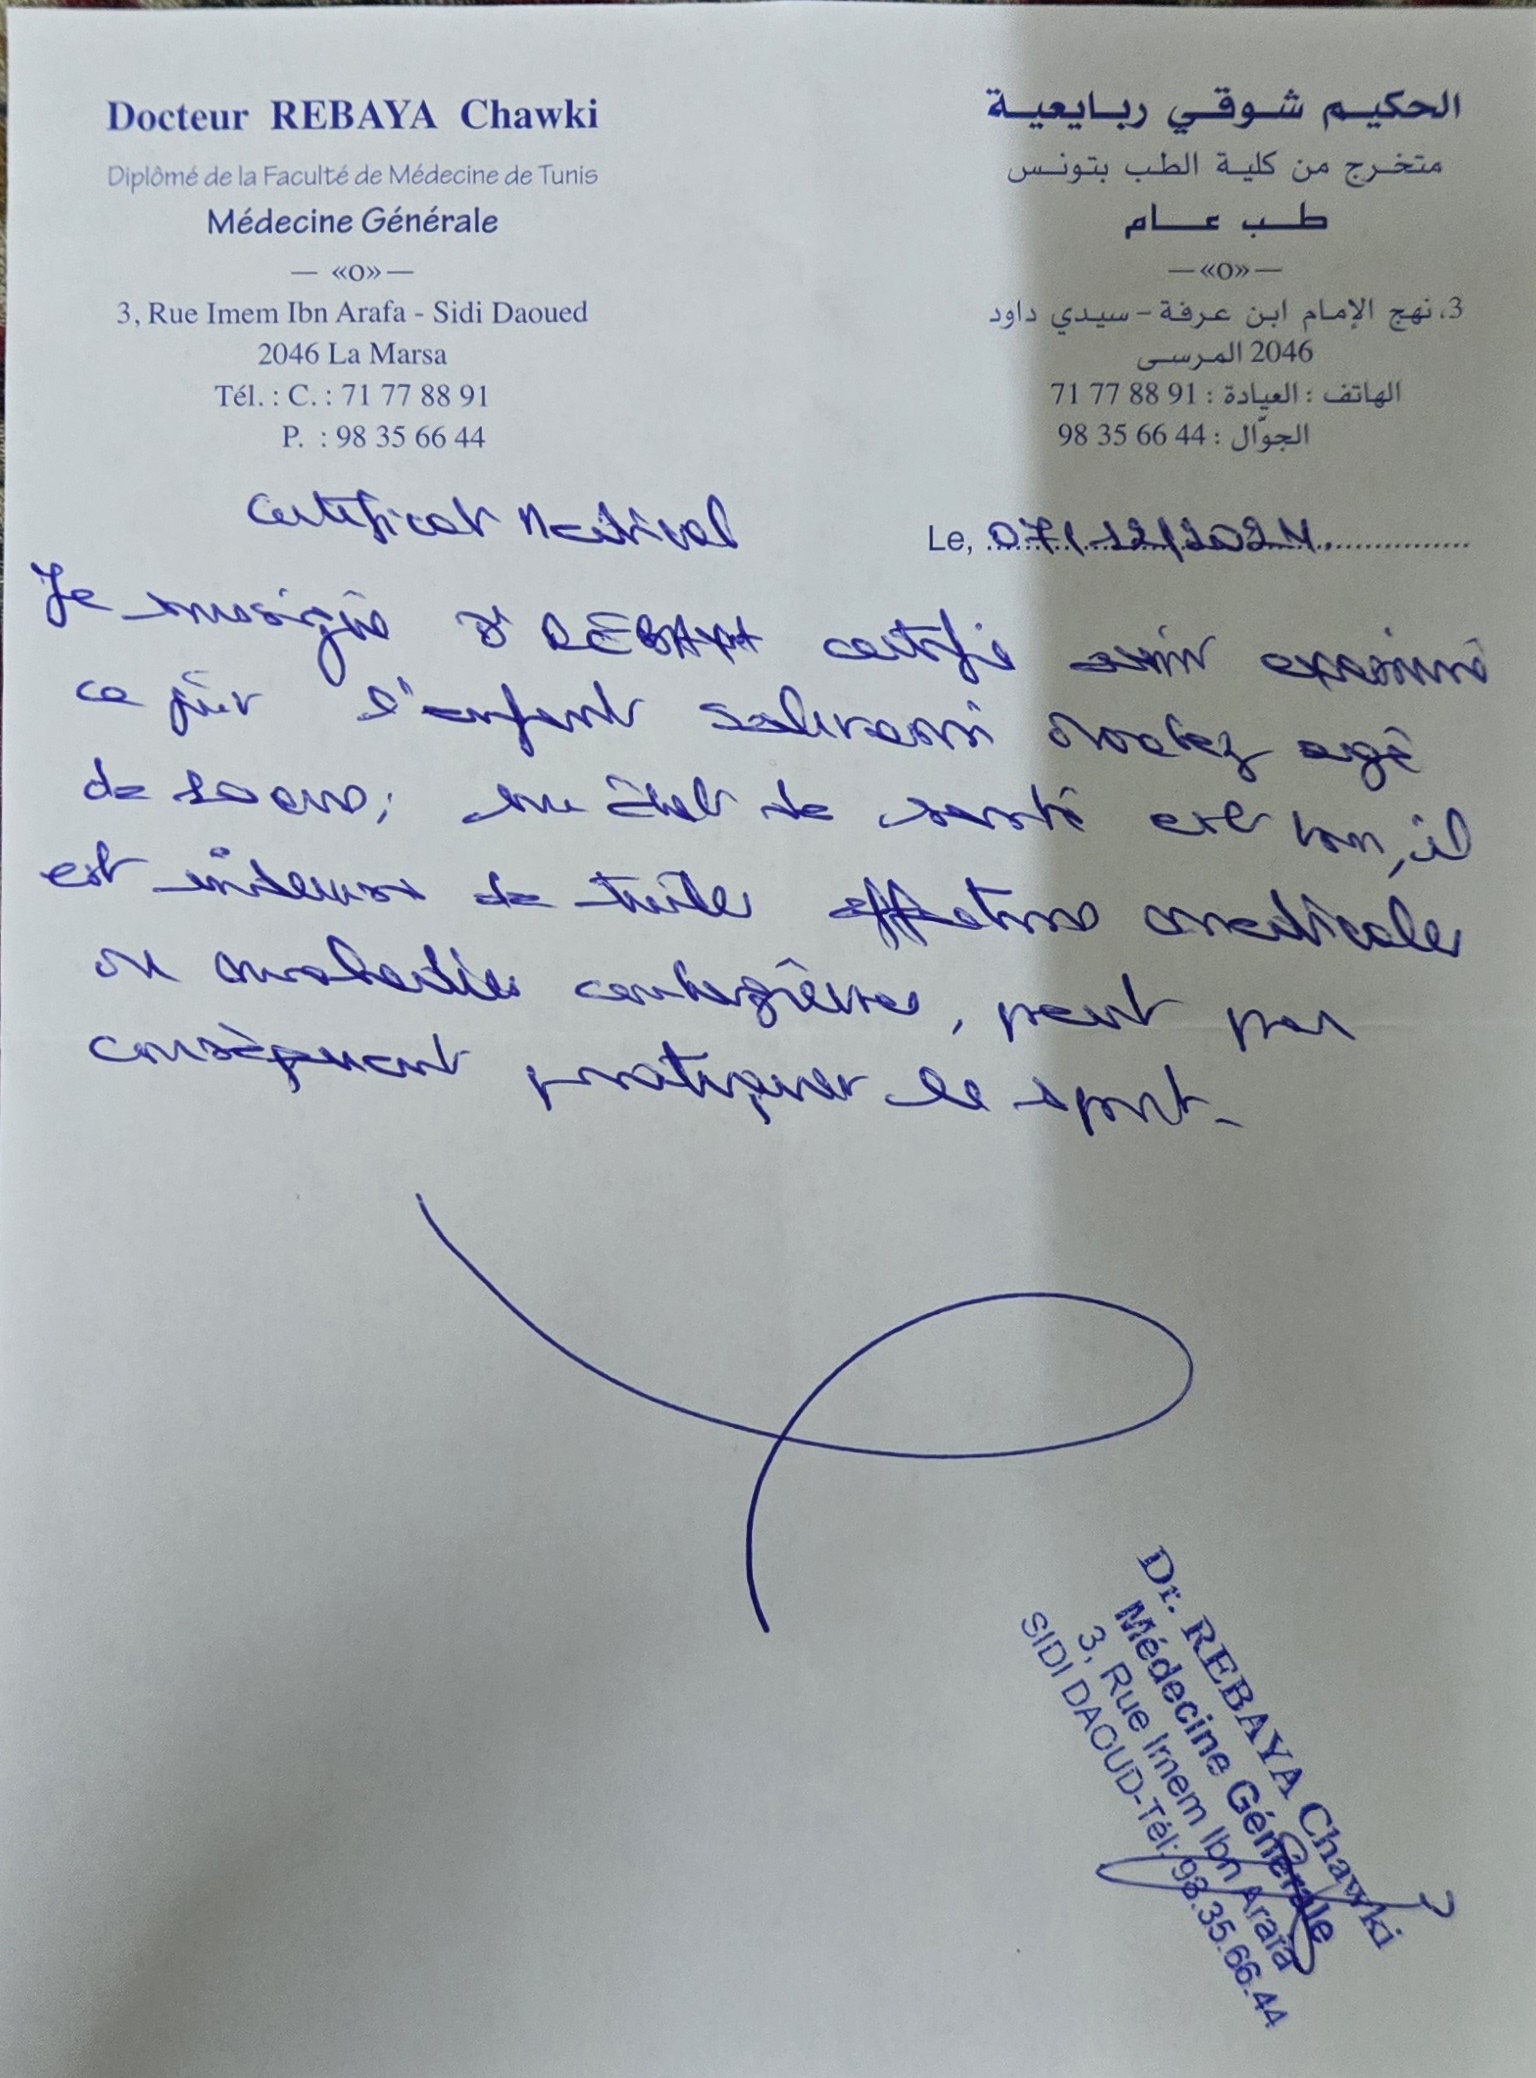 Docteur REBAYA Chawki
Diplômé de la Faculté de Médecine de Tunis
Médecine Générale
— «O» —
3, Rue Imem Ibn Arafa - Sidi Daoued
2046 La Marsa
Tél. : C. : 71 77 88 91
P. : 98 35 66 44
الحكيم شوقي ربايعية
متخرج من كلية الطب بتونس
طب عام
— «O» —
3، نهج الإمام ابن عرفة - سيدي داود
2046 المرسى
الهاتف : العيادة : 91 88 77 71
الجوّال : 44 66 35 98
Certificat Médical
Le, 07/12/2024
Je soussigné Dr REBAYA certifie avoir examiné
ce jour l'enfant agé
de ans; son état de santé est bon, il
est indemne de toute affections médicales
ou maladies contagieuses, peut par
conséquent pratiquer le sport.
Dr. REBAYA Chawki
Médecine Générale
3, Rue Imem Ibn Arafa
SIDI DAOUD-Tél: 98.35.66.44